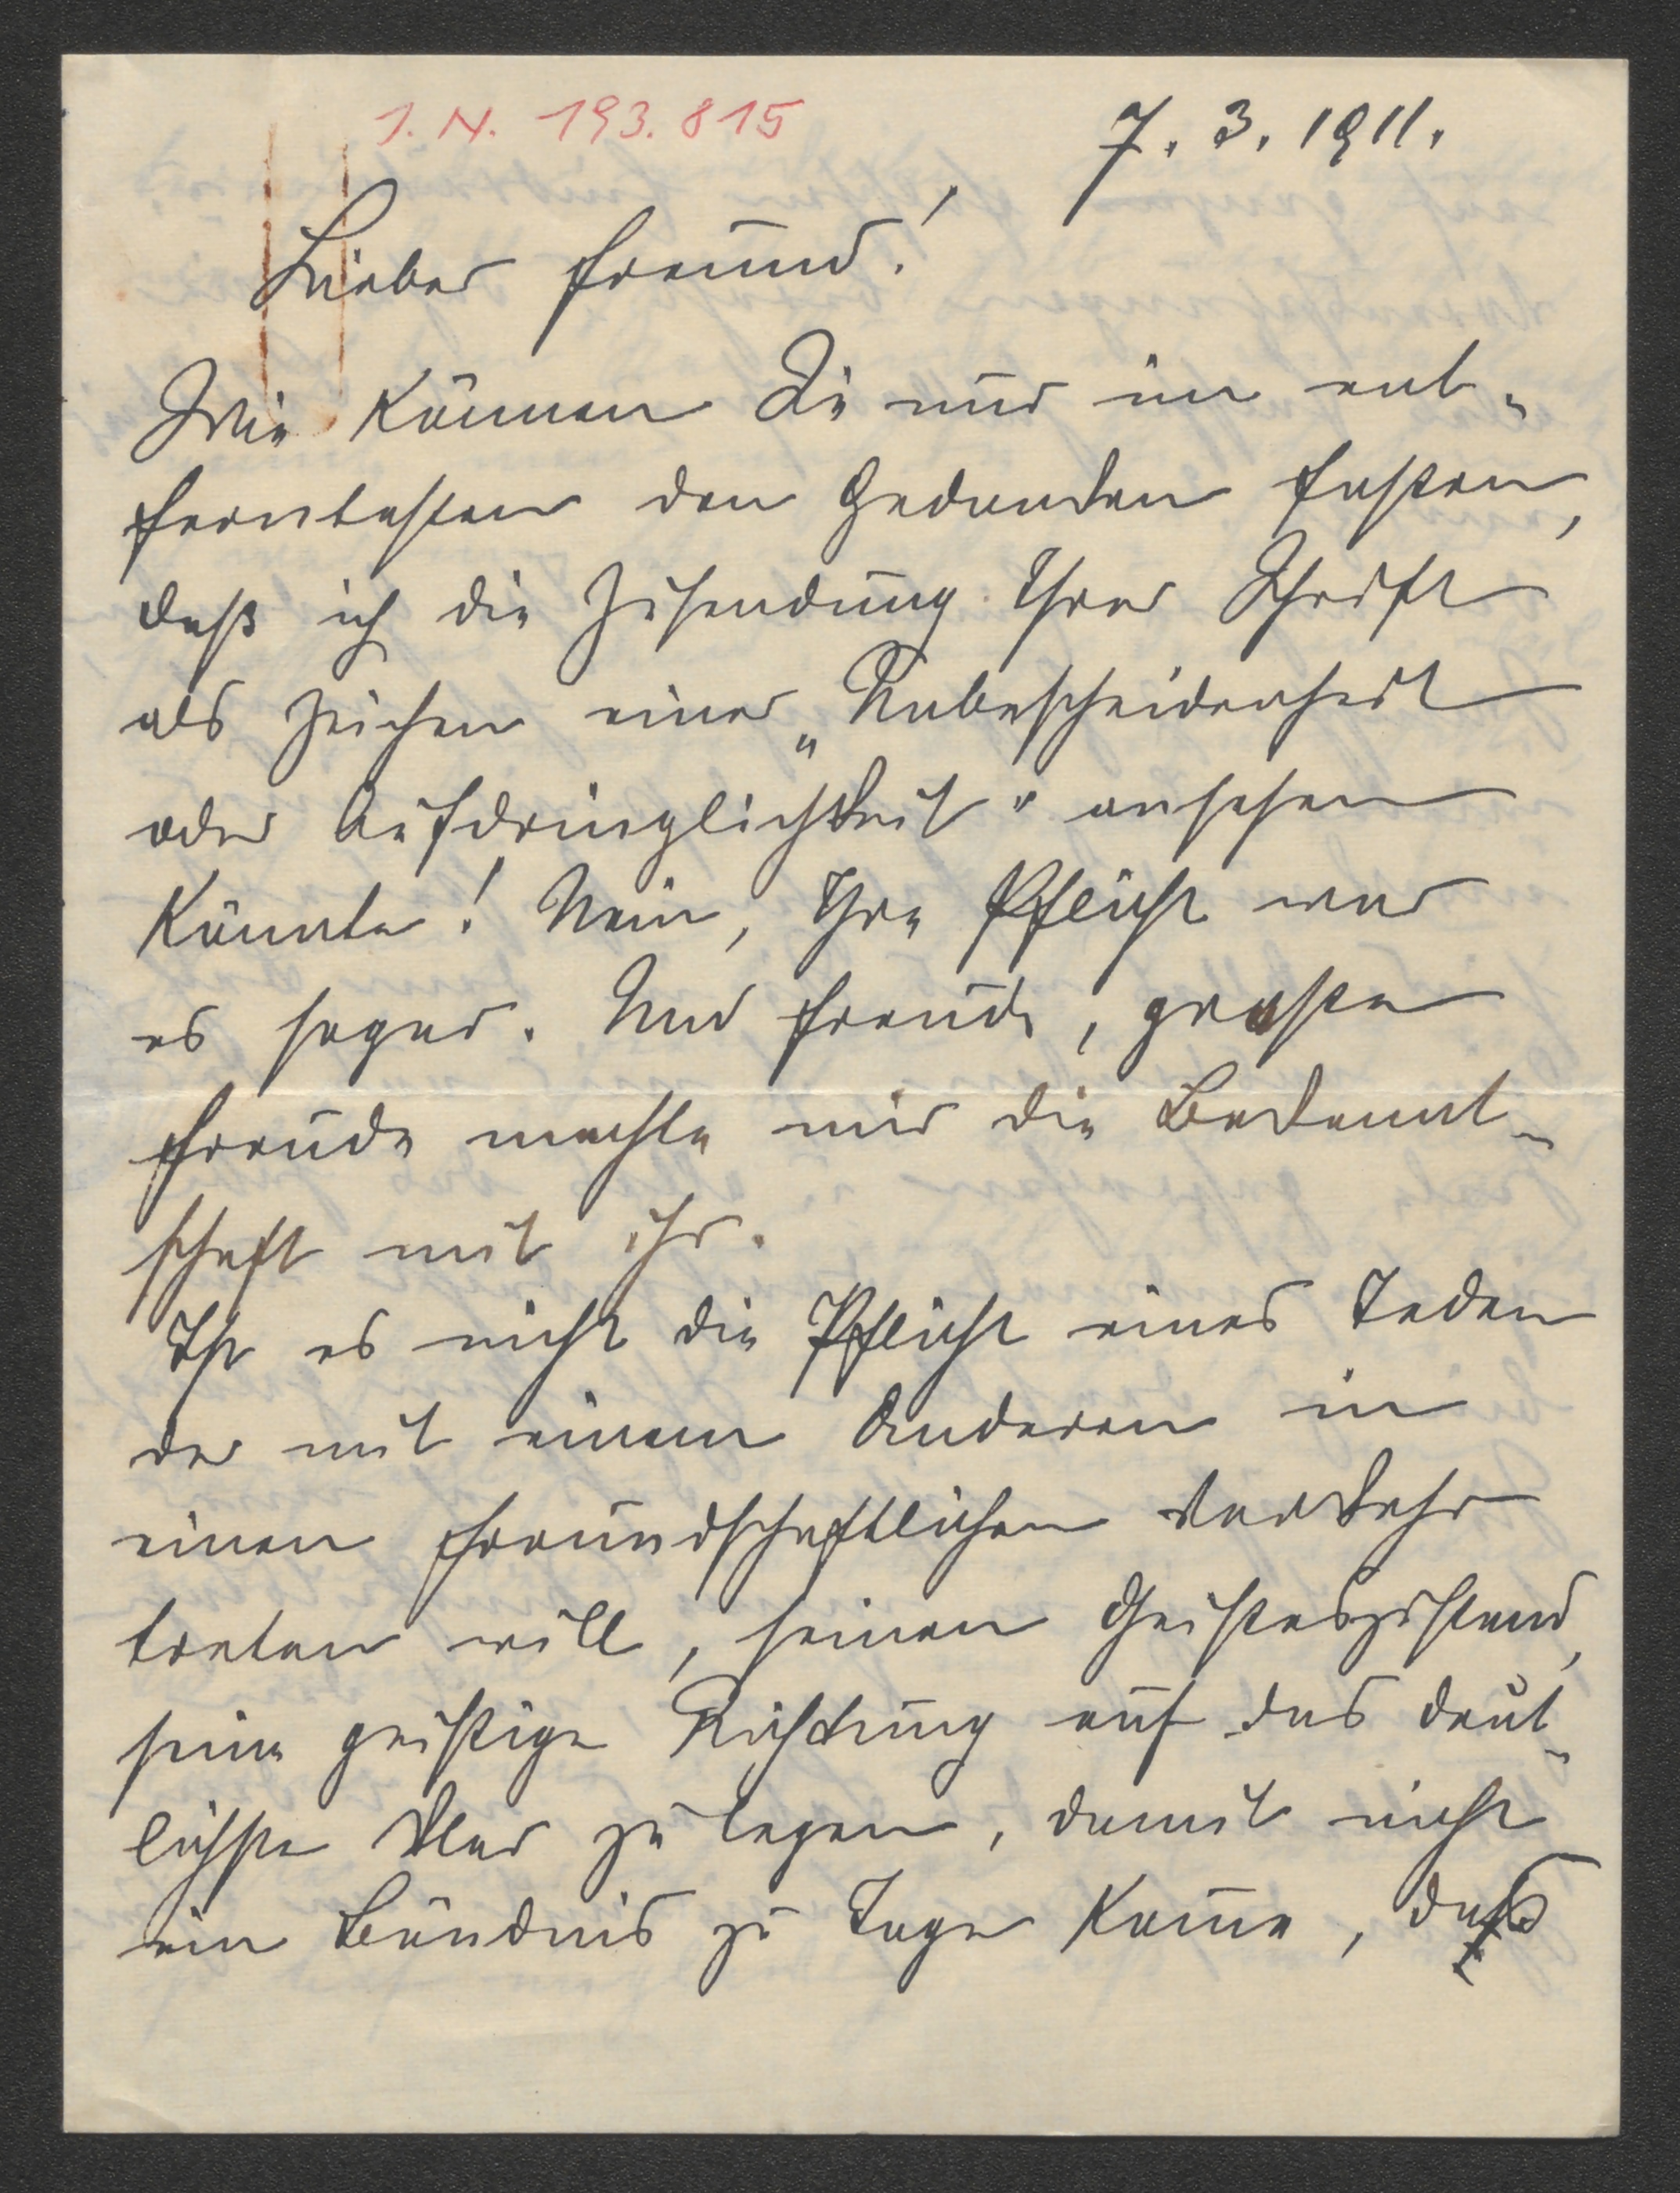 I. N. 193.815
7. 3. 1911.
Lieber Freund!
Wie können Sie nur im ent-
ferntesten den Gedanken fassen,
daß ich die Zusendung Ihrer Schrift
als Zeichen einer „Unbescheidenheit
oder Aufdringlichkeit" ansehen
könnte! Nein, Ihre Pflicht war
es sogar. Und Freude, große
Freude machte mir die Bekannt-
schaft mit ihr.
Ist es nicht die Pflicht eines Jeden
der mit einem Anderen in
einen freundschaftlichen Verkehr
treten will, seinen Geisteszustand,
seine geistige Richtung auf das deut-
lichste klar zu legen, damit nicht
ein Bündnis zu Tage kom̅e, daß